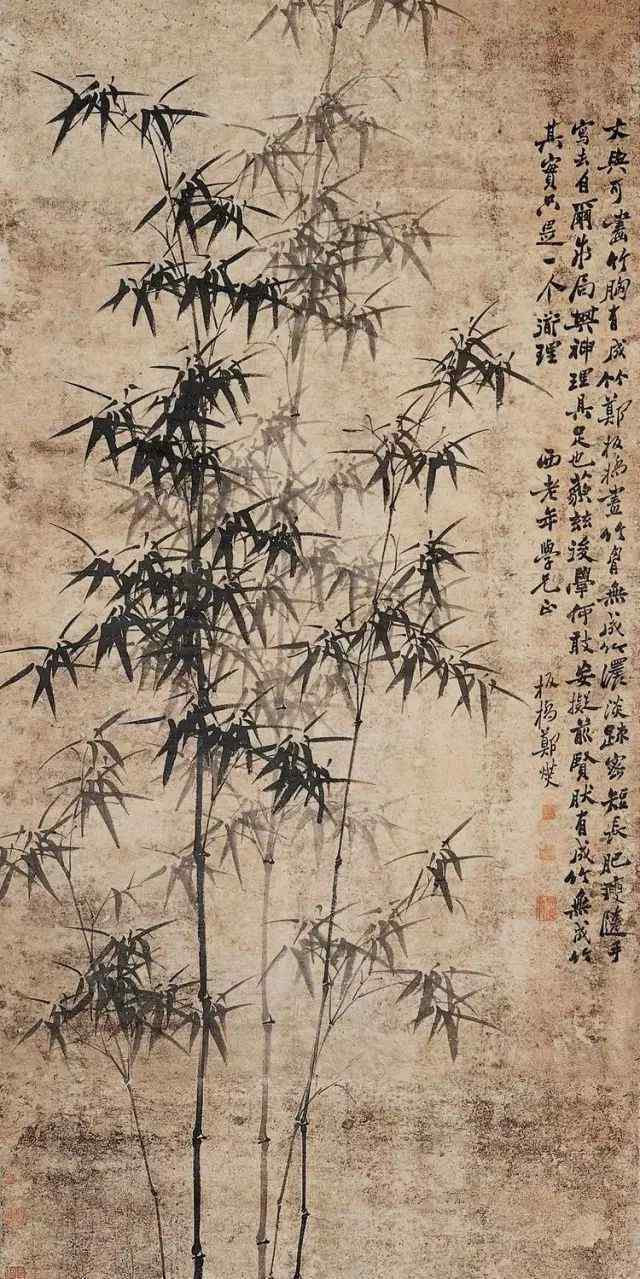 文與可畫竹胸有成竹鄭板橋畫竹胷無成竹濃淡踈密短長肥瘦隨手
寫去自爾成局其神理具足也藐茲後學何敢妄擬前賢肰有成竹無成竹
其實只是一个道理
酉老年學兄正
板橋鄭燮